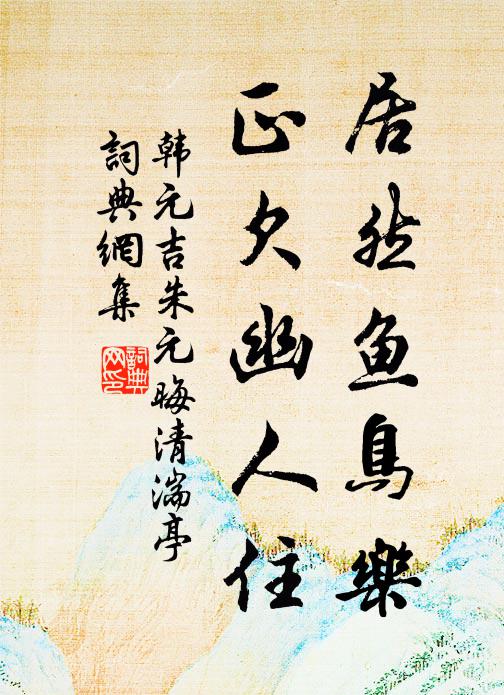 居然鱼鳥樂
正欠幽人住
韩元吉朱元晦清湍亭
詞典網集
詞典网印